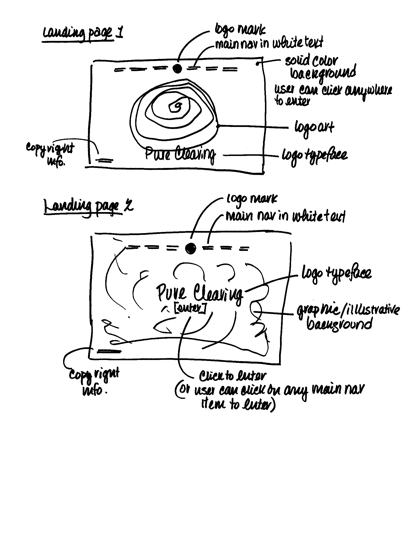 Landing page 1
logo mark
main nav in white text
solid color
background
user can click anywhere
to enter
logo art
copyright
info.
Pure Clearing
logo typeface
Landing page 2
logo mark
main nav in white text
logo typeface
Pure Clearing
[enter]
graphic/illustrative
background
copyright
info.
click to enter
(or user can click on any main nav
item to enter)